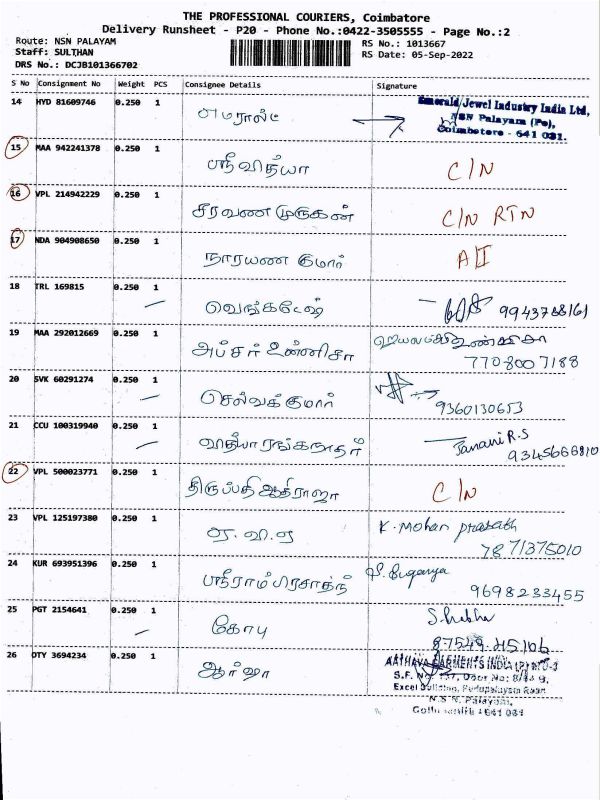 THE PROFESSIONAL COURIERS, Coimbatore
Delivery Runsheet - P20 - Phone No.:0422-3505555 - Page No.:2
Route: NSN PALAYAM
Staff: SULTHAN
DRS No.: DCJB101366702
RS No.: 1013667
RS Date: 05-Sep-2022
S No Consignment No Weight PCS Consignee Details Signature
14 HYD 81609746 0.250 1
Emerald Jewel Industry India Ltd,
NSN Palayam (Po),
Coimbatore - 641 031.
15 MAA 942241378 0.250 1
ஸ்ரீவித்யா C/N
16 VPL 214942229 0.250 1
சரவண முருகன் C/N RTN
17 NDA 904908650 0.250 1
நாராயண குமார்
18 TRL 169815 0.250 1
வெங்கடேஷ் 9943768161
19 MAA 292012669 0.250 1
அப்சர் உன்னிசா
7708007188
20 SVK 60291274 0.250 1
செல்வக்குமார் 9360130653
21 CCU 100319940 0.250 1
Janani R.S
9345668810
22 VPL 500023771 0.250 1
திருப்பதி ஆதிராஜா C/N
23 VPL 125197380 0.250 1
ஏ.வி.ஏ K. Mohan prasath
7871375010
24 KUR 693951396 0.250 1
ஸ்ரீராம் பிரசாத் S. Suganya
9698233455
25 PGT 2154641 0.250 1
கோபு Shobha
87549 45106
26 OTY 3694234 0.250 1
ஆர்ஷா
GARMENTS INDIA (P)
S.F. No. 137, Door No: 8/
Excel Building,
N.S.N. Palayam,
641 031